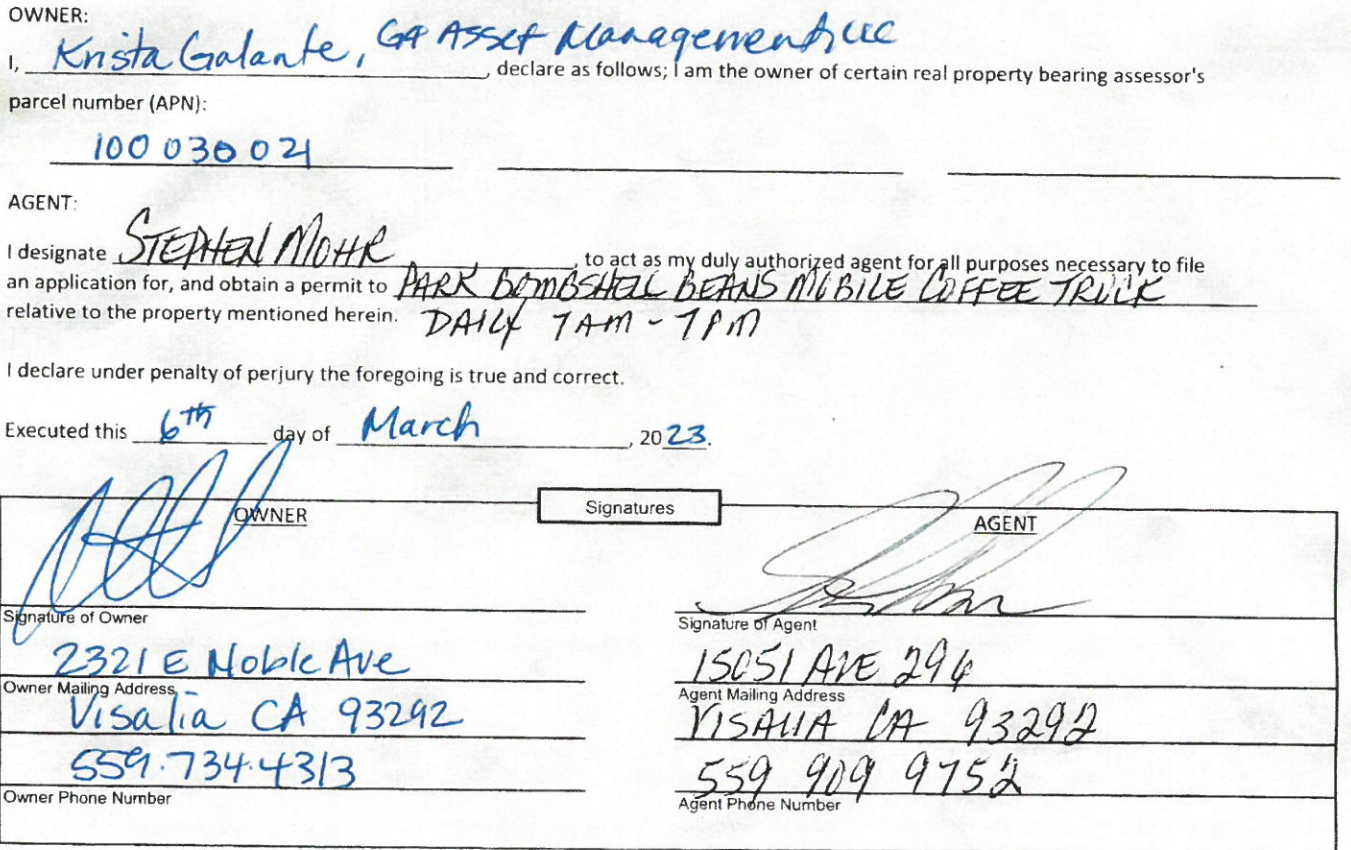 OWNER:
I, Krista Galante, GA Asset Management, LLC, declare as follows; I am the owner of certain real property bearing assessor's
parcel number (APN):
100 030 021
AGENT:
I designate STEPHEN MOHR, to act as my duly authorized agent for all purposes necessary to file
an application for, and obtain a permit to PARK BOMBSHELL BEANS MOBILE COFFEE TRUCK
relative to the property mentioned herein. DAILY 7AM - 7PM
I declare under penalty of perjury the foregoing is true and correct.
Executed this 6th day of March, 2023.
Signatures
OWNER
Signature of Owner
2321 E Noble Ave
Owner Mailing Address
Visalia CA 93292
559.734.4313
Owner Phone Number
AGENT
Signature of Agent
15051 AVE 296
Agent Mailing Address
VISALIA CA 93292
559 909 9752
Agent Phone Number